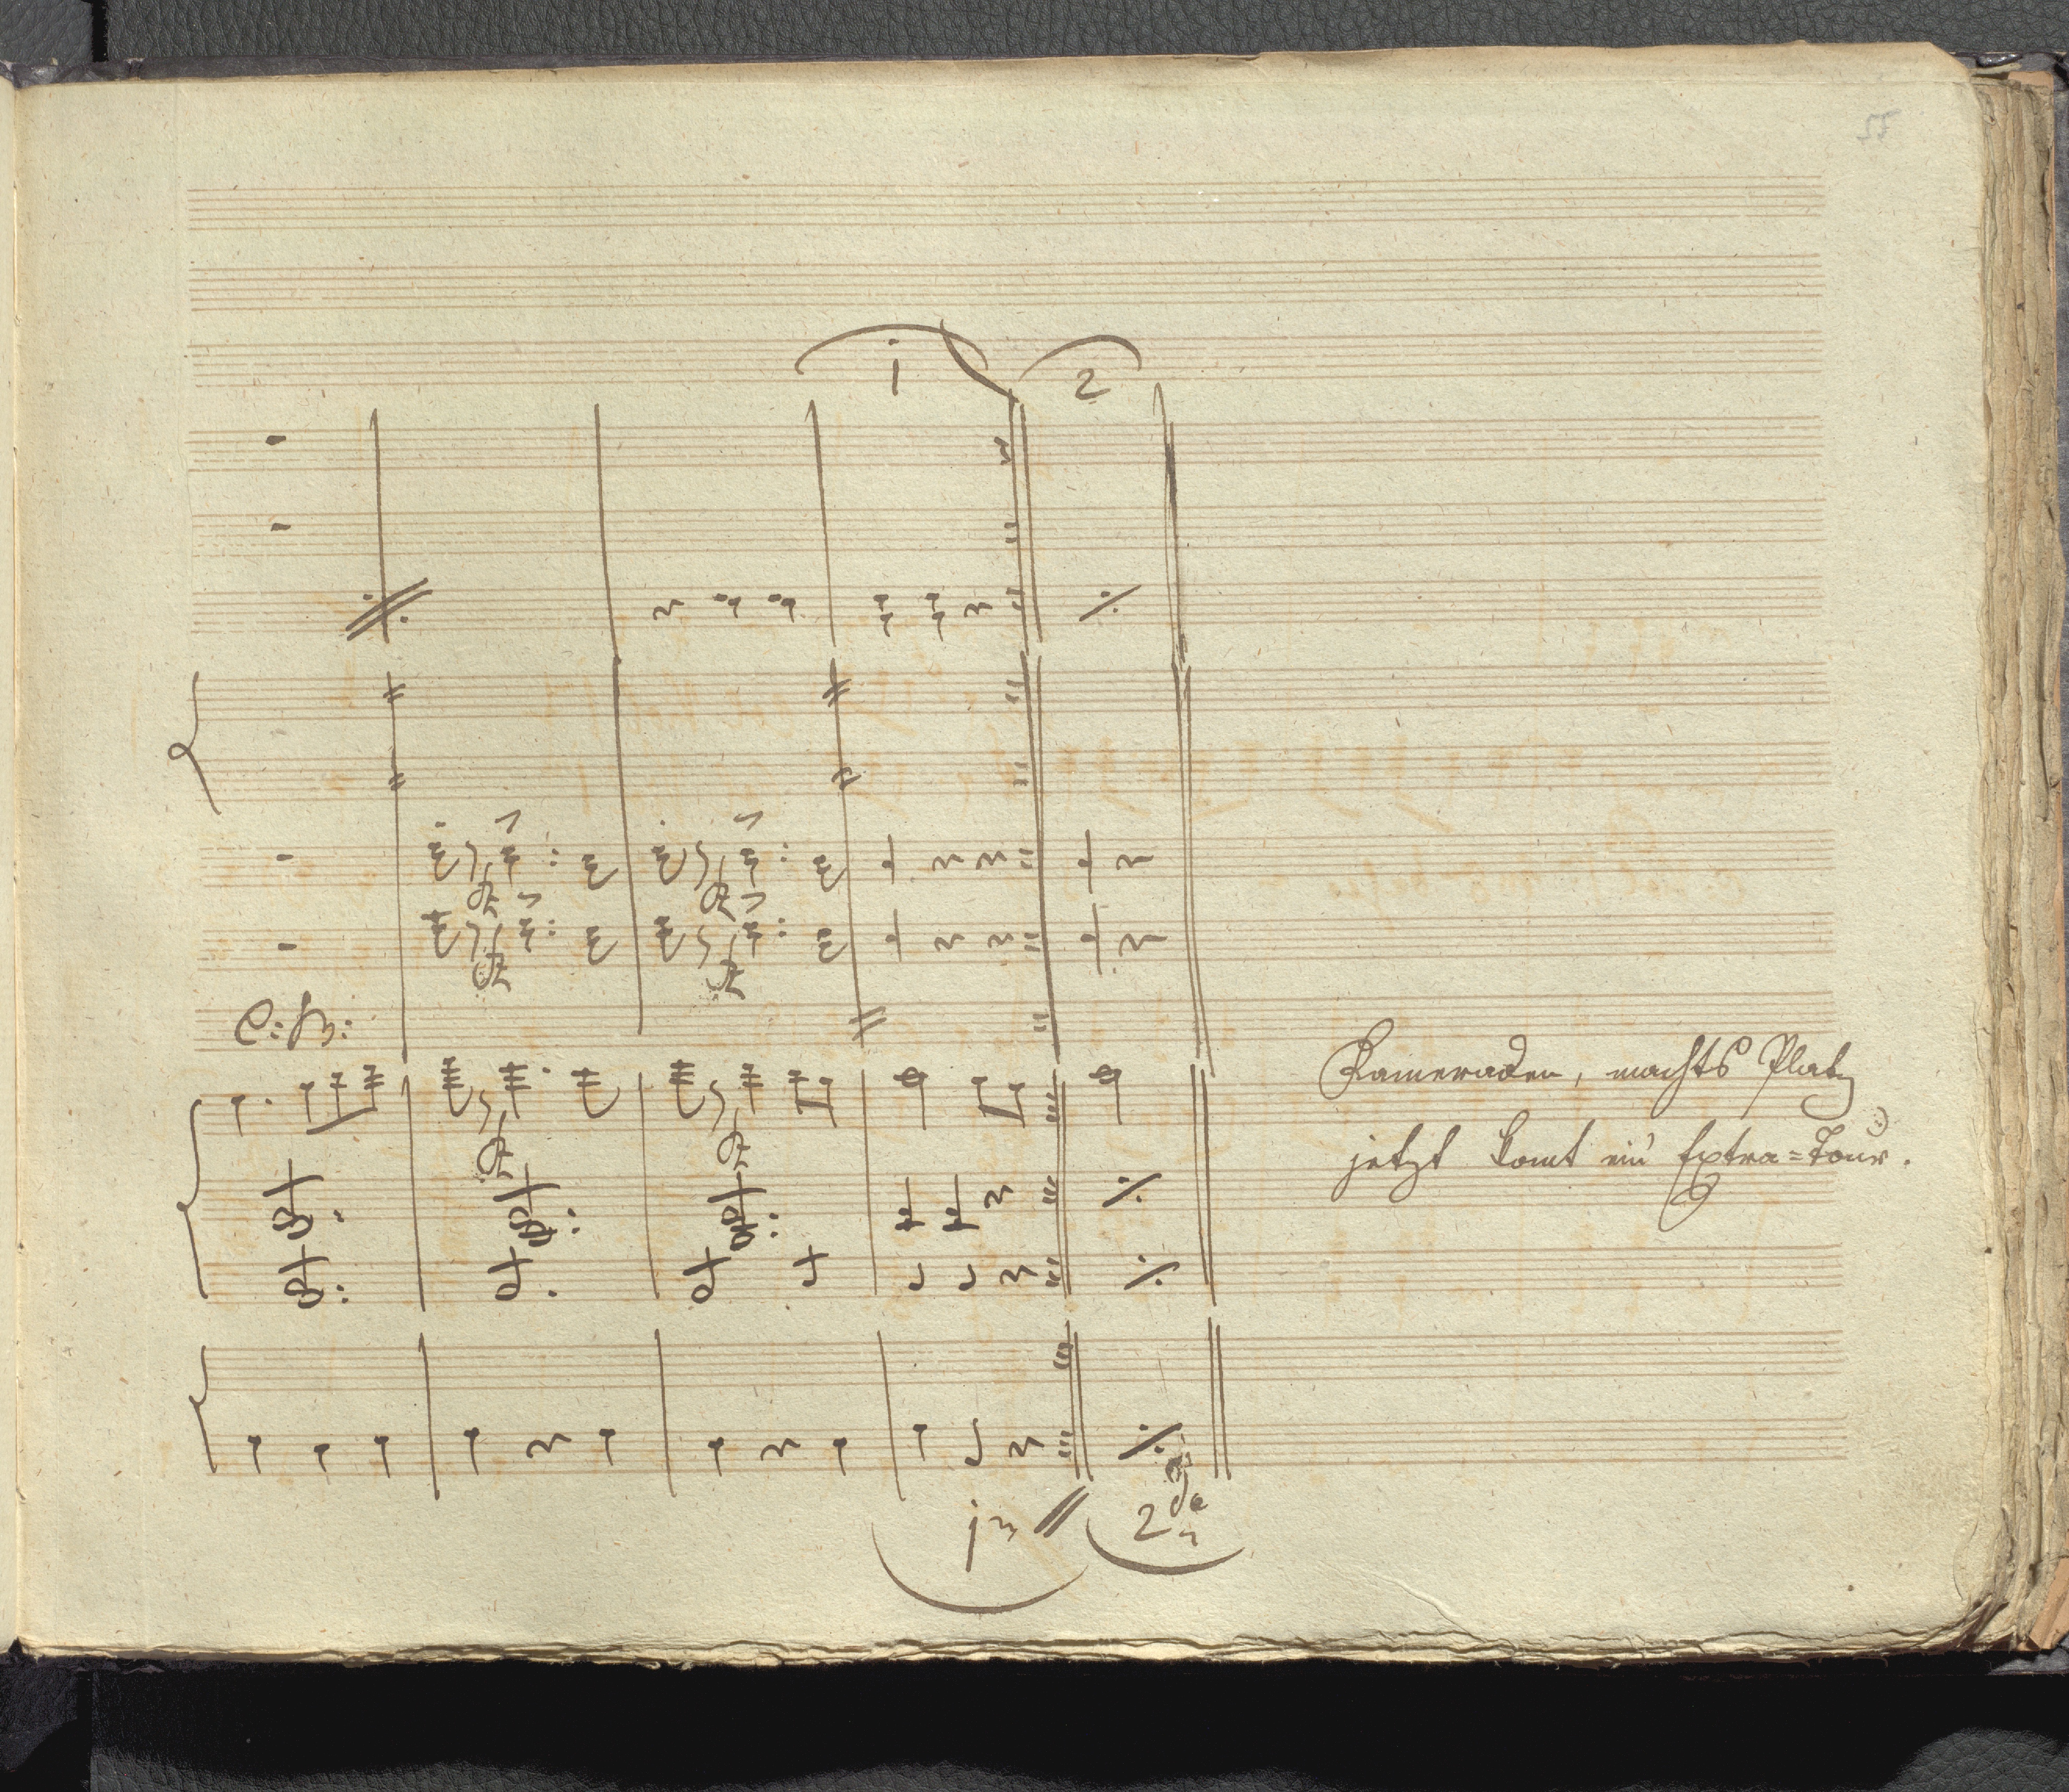 55
1 2
C: B:
Kameraden, machts Platz
jetzt komt ein Extra=Tour.
1m 2da